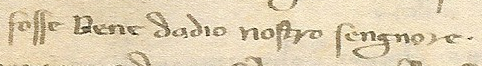 fosse Bene dadio nostro sengnore.